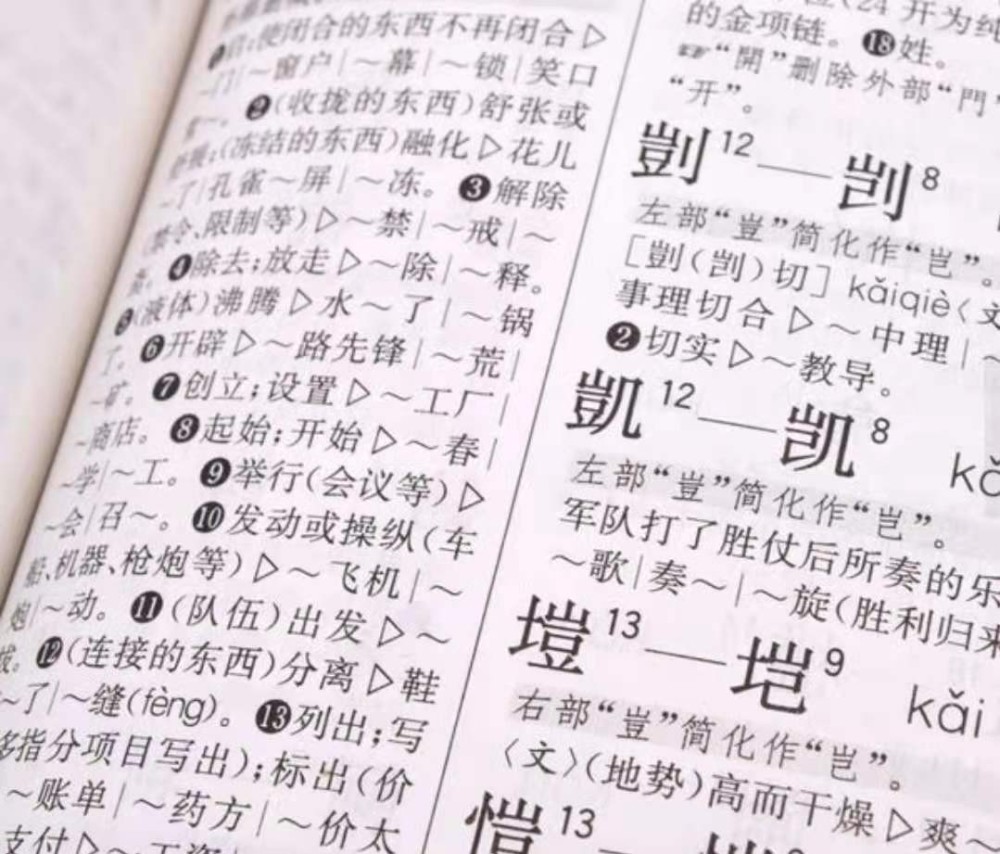 使闭合的东西不再闭合▷
门|～窗户|～幕|～锁|笑口
一。❷(收拢的东西)舒张或
(冻结的东西)融化▷花儿
～了|孔雀～屏|～冻。❸解除
(禁令、限制等)▷～禁|～戒|～
❹除去;放走▷～除|～释。
❺(液体)沸腾▷水～了|～锅
了。❻开辟▷～路先锋|～荒|
～矿。❼创立;设置▷～工厂|
～商店。❽起始;开始▷～春|
～学|～工。❾举行(会议等)▷
～会|召～。❿发动或操纵(车
船、机器、枪炮等)▷～飞机|～
炮|～动。⓫(队伍)出发▷～
拔。⓬(连接的东西)分离▷鞋
～了|～缝(fèng)。⓭列出;写
多指分项目写出);标出(价
～账单|～药方|～价太
支付▷～工资
(24开为纯
的金项链。⓲姓。
☞“開”删除外部“門”
“开”。
剴12——剀8
左部“豈”简化作“岂”。
[剴(剀)切] kǎiqiè〈文
事理切合▷～中理|～
❷切实▷～教导。
凱12——凯8 kǎ
左部“豈”简化作“岂”。
军队打了胜仗后所奏的乐
～歌|奏～|～旋(胜利归来
塏13——垲9 kǎi
右部“豈”简化作“岂”。
〈文〉(地势)高而干燥▷爽～
愷13